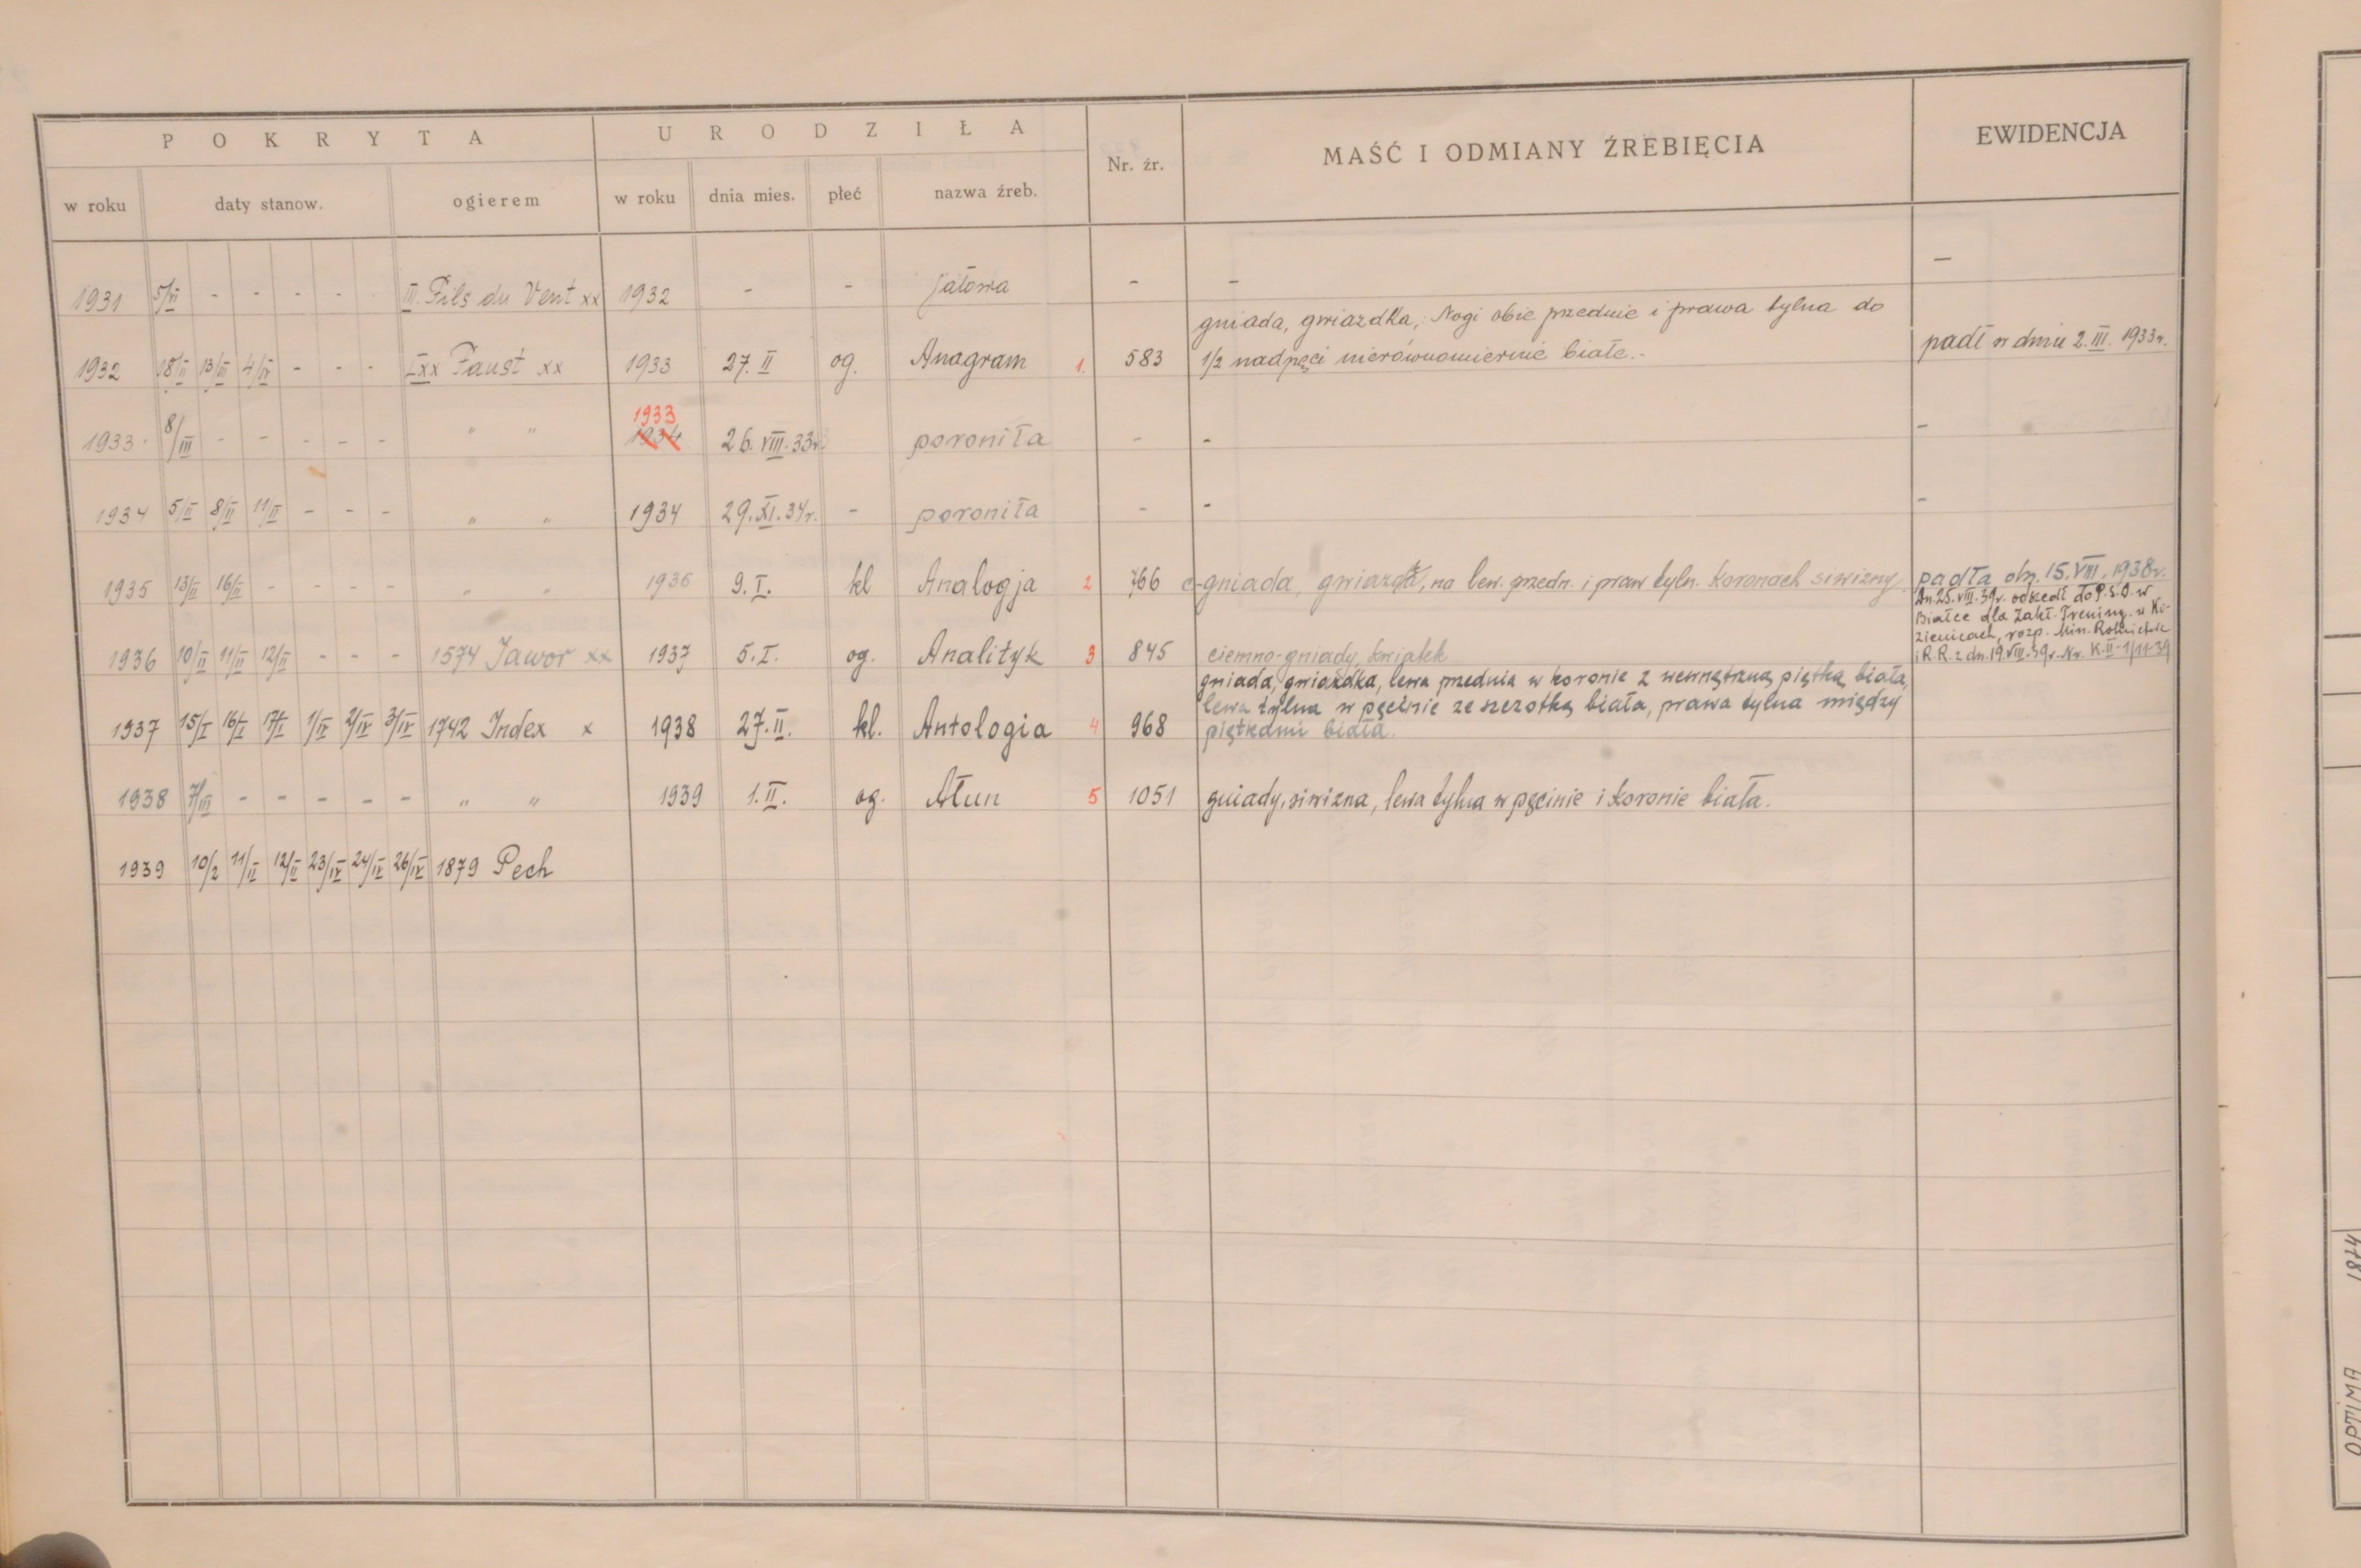 P O K R Y T A U R O D Z I Ł A Nr. źr. MAŚĆ I ODMIANY ŹREBIĘCIA EWIDENCJA
w roku daty stanow. ogierem w roku dnia mies. płeć nazwa źreb.
1931 5/VI - - - - III. Fils du Vent xx 1932 - - jałowa - - -
gniada, gwiazdka, Nogi obie przednie i prawa tylna do
1932 18/II 13/III 4/IV - - - Ixx Faust xx 1933 27. II og. Anagram 1. 583 1/2 nadpęci nierównomiernie białe.- padł w dniu 2. III. 1933r.
1933
1933 8/III - - - - - " " 1934 26. VIII. 33r. poroniła - - -
1934 5/II 8/II 11/II - - - " " 1934 29. XI. 34r. - poroniła - - -
1935 13/II 16/II - - - - " " 1936 9. I. kl Analogja 2 766 c-gniada, gwiazdka, na lew. przedn. i praw tyln. koronach siwizny padła dn. 15. VIII. 1938r.
Dn. 25. VIII. 39r. odszedł do P.S.O. w
Białce dla Zakł. Trening. w Ko-
zienicach, rozp. Min. Rolnictwa
i R.R. z dn. 19. VIII. 39r. Nr. K.II-1/11-39
1936 10/II 11/II 12/II - - - 1574 Jawor xx 1937 5. I. og. Analityk 3 845 ciemno-gniady, kwiatek
gniada, gwiazdka, lewa przednia w koronie z wewnętrzną piętką biała,
lewa tylna w pęcinie ze szczotką biała, prawa tylna między
1937 15/I 16/I 17/I 1/IV 2/IV 3/IV 1742 Index x 1938 27. II. kl. Antologia 4 968 piętkami biała.
1938 7/III - - - - - " " 1939 1. II. og. Ałun 5 1051 gniady, siwizna, lewa tylna w pęcinie i koronie biała.
1939 10/2 11/II 12/II 23/IV 24/IV 26/IV 1879 Pech
1874
OPTIMA